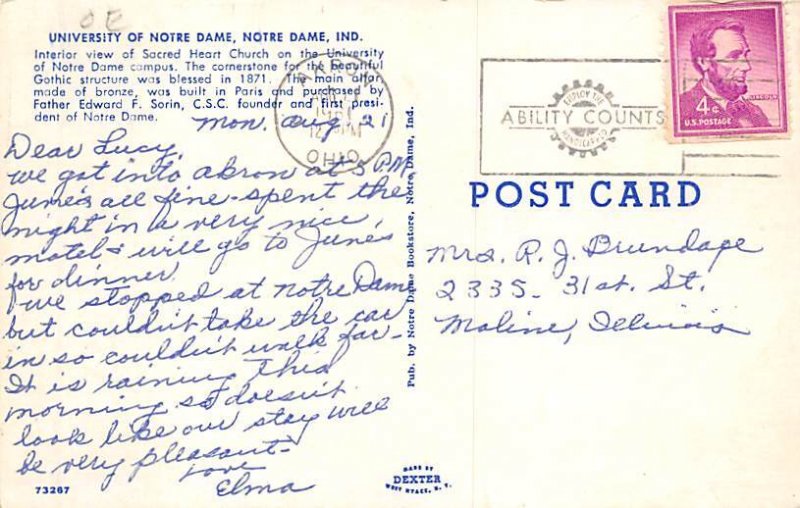 OE
UNIVERSITY OF NOTRE DAME, NOTRE DAME, IND.
Interior view of Sacred Heart Church on the University
of Notre Dame campus. The cornerstone for the beautiful
Gothic structure was blessed in 1871. The main altar
made of bronze, was built in Paris and purchased by
Father Edward F. Sorin, C.S.C. founder and first presi-
dent of Notre Dame.
Mon. Aug. 21
Dear Lucy,
We got into Akron at 5 P.M.
June's all fine - spent the
night in a very nice
motel & will go to June's
for dinner.
We stopped at Notre Dame
but couldn't take the car
in so couldn't walk far -
It is raining this
morning so doesn't
look like our stay will
be very pleasant -
Love
Elma
73267
Pub. by Notre Dame Bookstore, Notre Dame, Ind.
MADE BY
DEXTER
WEST NYACK, N. Y.
OHIO
EMPLOY THE
ABILITY COUNTS
HANDICAPPED
4¢
LINCOLN
U.S. POSTAGE
POST CARD
Mrs. R. J. Brundage
2335 - 31st. St.
Moline, Illinois